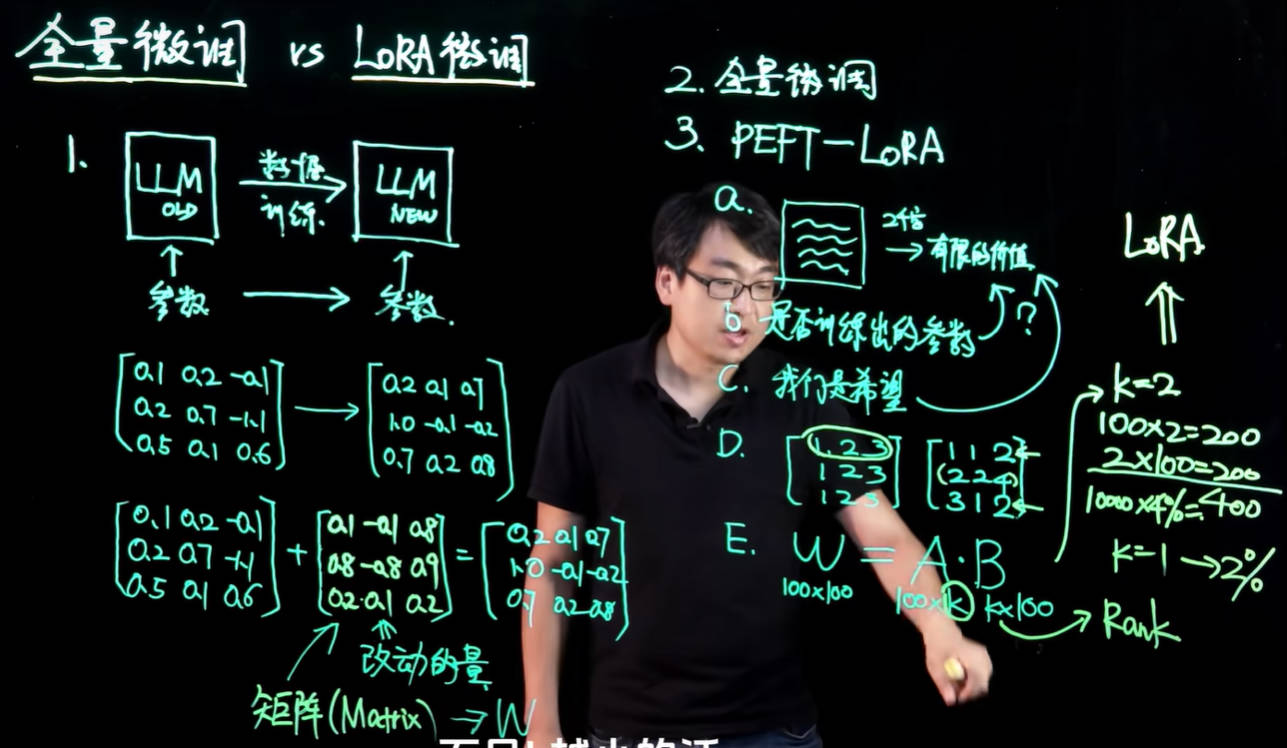 全量微调 vs LoRA微调
1.
LLM OLD
数据
训练.
LLM NEW
参数
参数.
0.1 0.2 -0.1
0.2 0.7 -1.1
0.5 0.1 0.6
0.2 0.1 0.7
1.0 -0.1 -0.2
0.7 0.2 0.8
0.1 0.2 -0.1
0.2 0.7 -1.1
0.5 0.1 0.6
+
0.1 -0.1 0.8
0.8 -0.8 0.9
0.2 0.1 0.2
=
0.2 0.1 0.7
1.0 -0.1 -0.2
0.7 0.2 0.8
改动的量
矩阵(Matrix) → W
2. 全量微调
3. PEFT-LoRA
a.
→ 有限的价值
b 是否训练出的参数
?
C. 我们是希望
D.
1 2 3
1 2 3
1 2 3
1 1 2
2 2 4
3 1 2
E. W = A·B
100x100
100xk
kx100
→ Rank
LoRA
k=2
100x2=200
2x100=200
400
k=1 → 2%